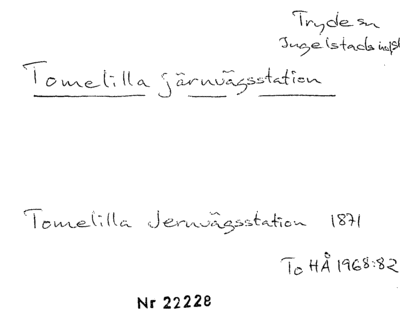 Tryde sn
Ingelstads
Tomelilla järnvägsstation
Tomelilla Jernvägsstation 1871
To HÅ 1968:82
Nr 22228